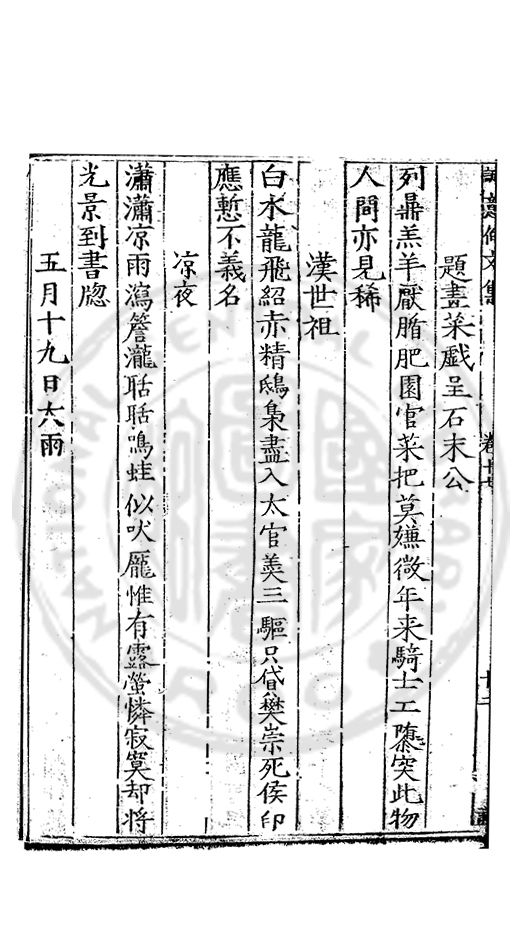 題畫菜戲呈石末公
列鼎羔羊厭腯肥園官菜把莫嫌微年来騎士工隳突此物
人間亦見稀
漢世祖
白水龍飛紹赤精鴟梟盡入太官羮三驅只貸樊崇死侯印
應慙不義名
凉夜
瀟瀟凉雨瀉簷瀧聒聒鳴蛙似吠厖惟有露螢憐寂寞却將
光景到書牎
五月十九日大雨
卷十七